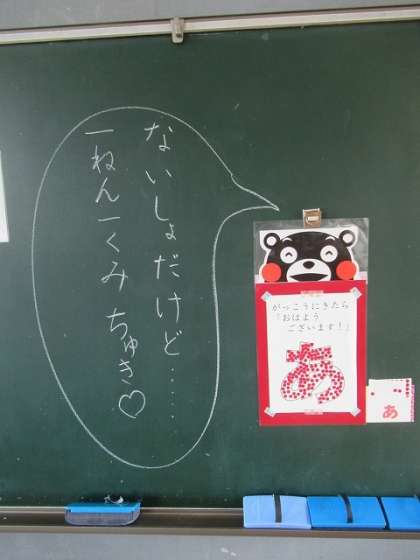 ないしょだけど……
一ねん一くみ ちゅき♡
がっこうにきたら
「おはよう
ございます！」
あ
あ